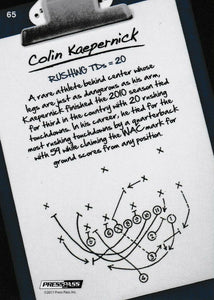 65
Colin Kaepernick
RUSHING TDs = 20
A rare athlete behind center whose
legs are just as dangerous as his arm,
Kaepernick finished the 2010 season tied
for third in the country with 20 rushing
touchdowns. In his career, he tied for the
most rushing touchdowns by a quarterback
with 59 while claiming the WAC mark for
ground scores from any position.
PRESS PASS
©2011 Press Pass, Inc.